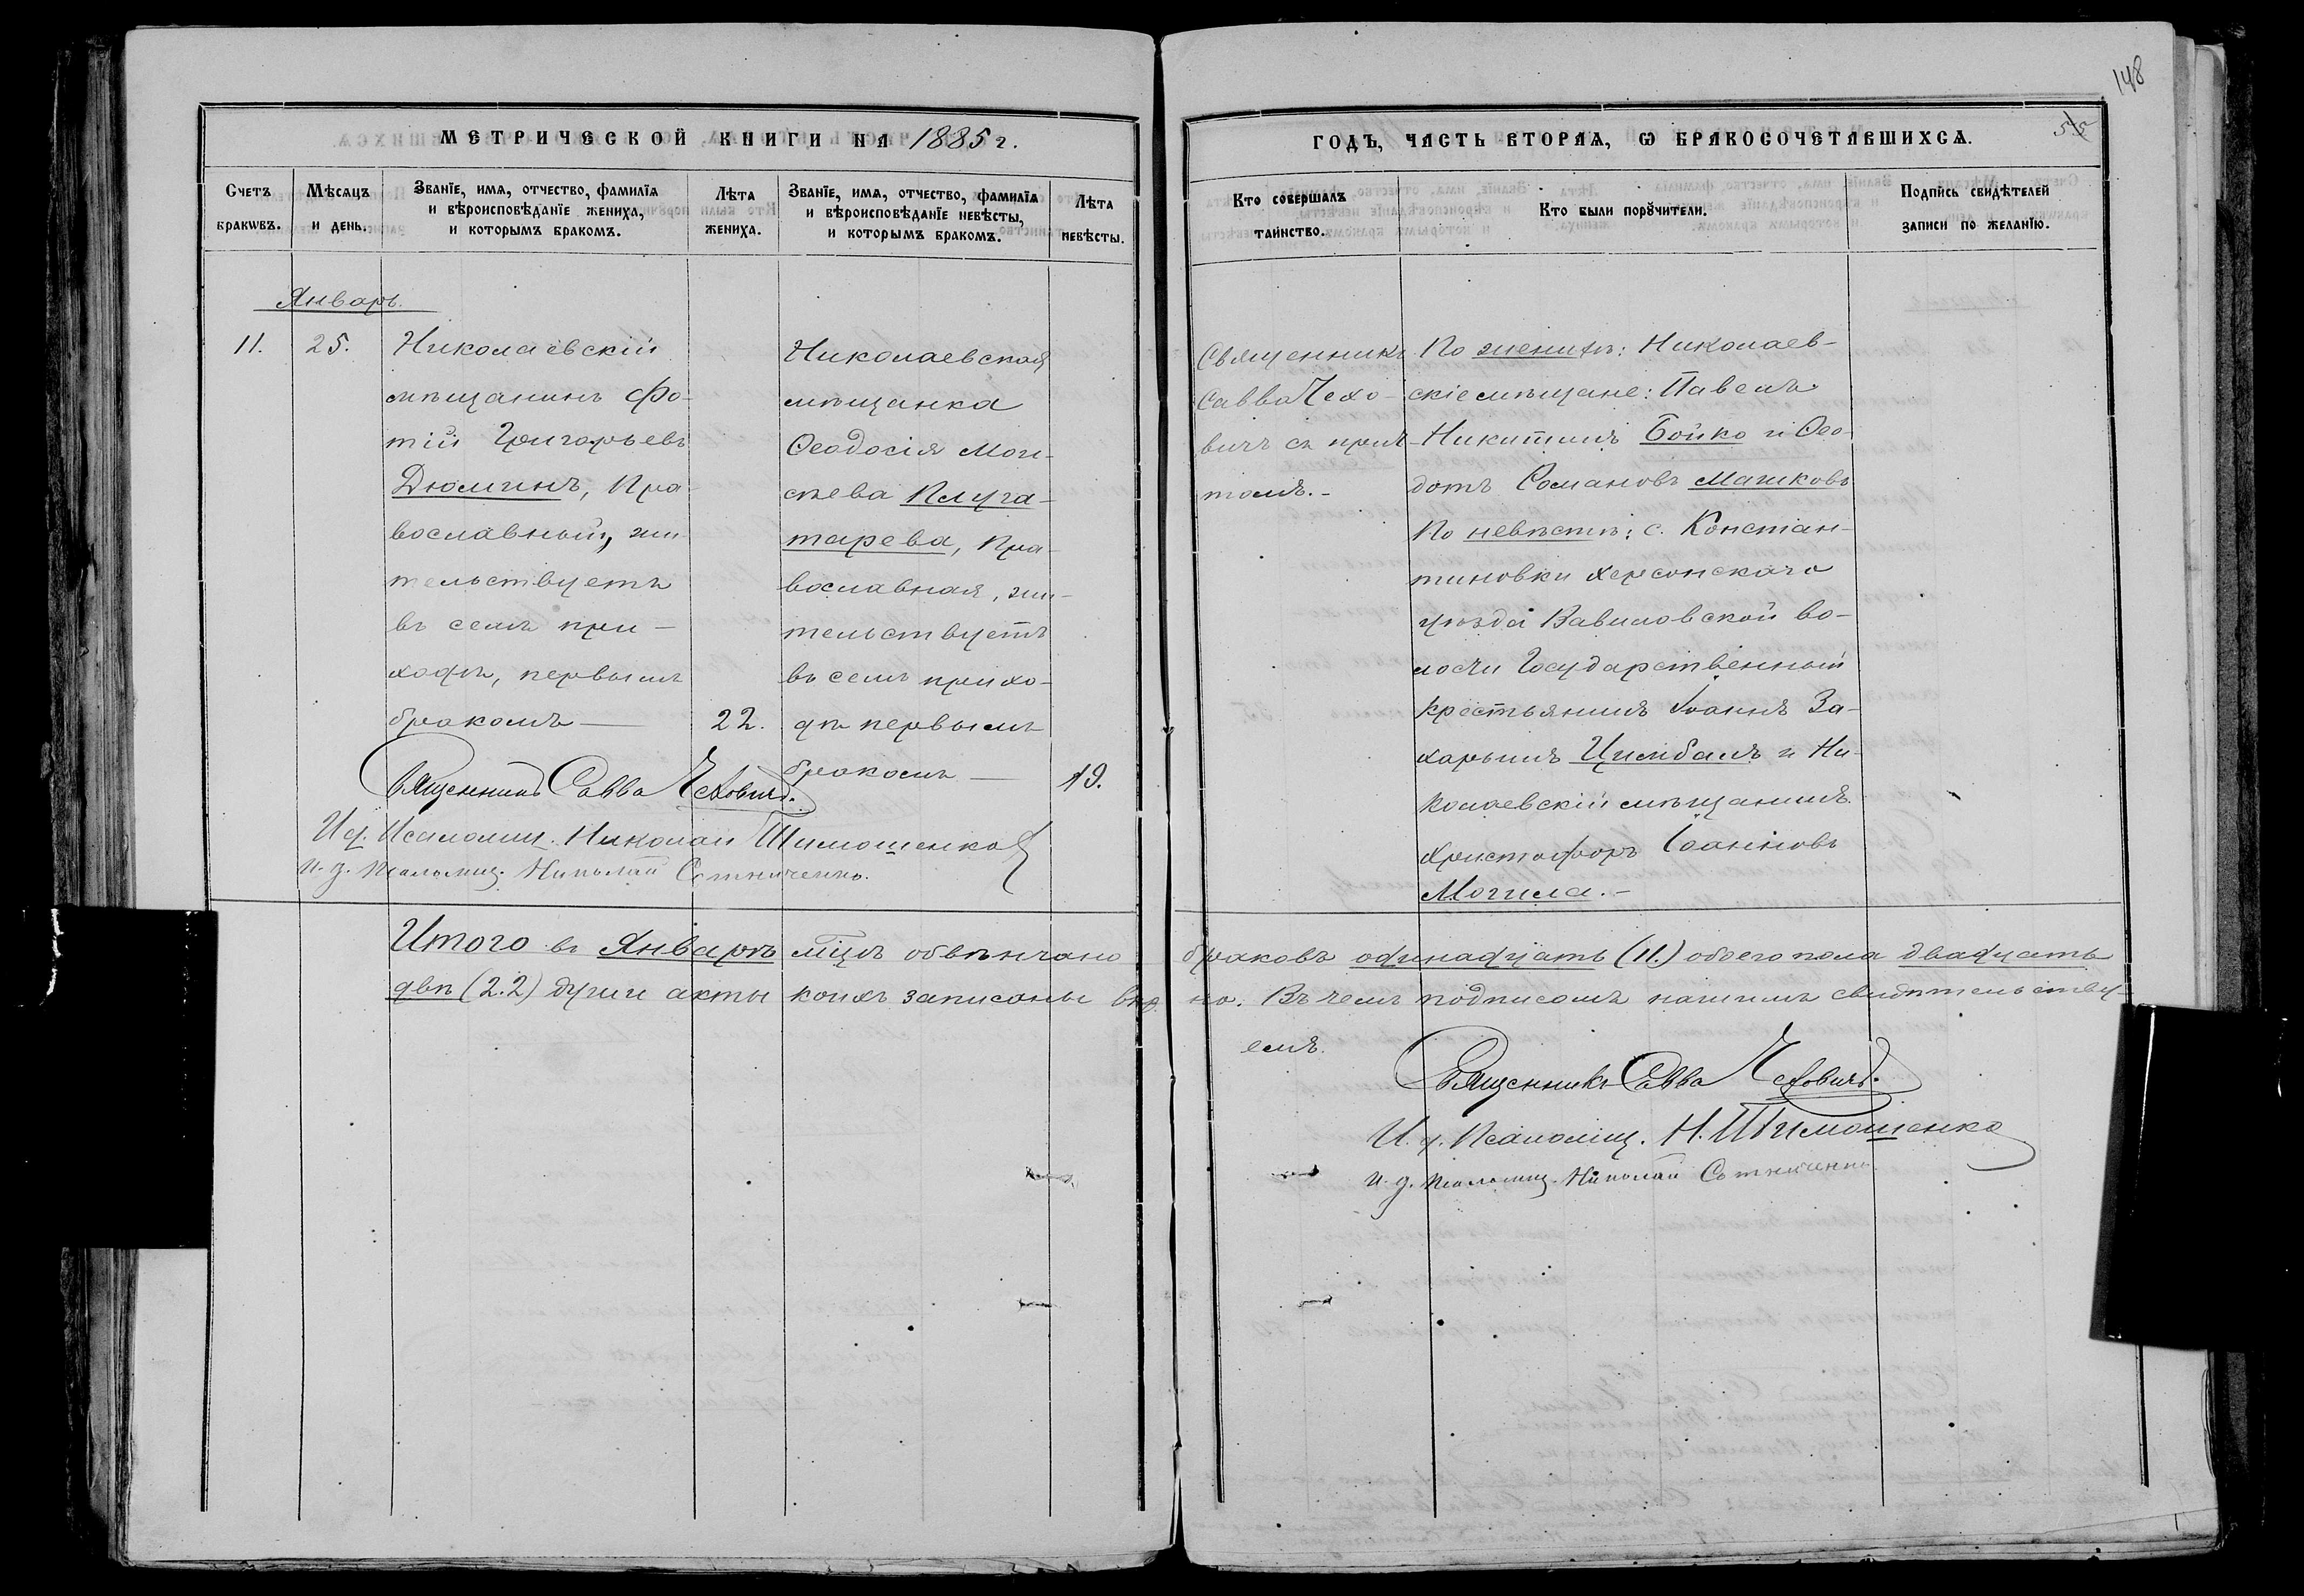 148
МЕТРИЧЕСКОЙ КНИГИ НА 1885 г.
ГОДЪ, ЧАСТЬ ВТОРАЯ, Ѡ БРАКОСОЧЕТАВШИХСѦ.
55
Счетъ браковъ.
Мѣсѧцъ и день.
Званїе, имѧ, отчество, фамилїѧ
и вѣроисповѣданїе жениха,
и которымъ бракомъ.
Лѣта
жениха.
Званїе, имѧ, отчество, фамилїѧ
и вѣроисповѣданїе невѣсты,
и которымъ бракомъ.
Лѣта
невѣсты.
Кто совершалъ
таинство.
Кто были порꙋчители.
Подпись свидѣтелей
записи по желанїю.
Январь.
11.
25.
Николаевскій
мѣщанинъ Фо-
тій Григорьевъ
Дюминъ, Пра-
вославный, жи-
тельствуетъ
въ семъ при-
ходѣ, первымъ
бракомъ —
22.
Николаевская
мѣщанка
Ѳеодосія Мои-
сѣева Плуга-
тарева, Пра-
вославная, жи-
тельствуетъ
въ семъ прихо-
дѣ первымъ
бракомъ —
19.
Священникъ
Савва Чехо-
вичъ съ прич-
томъ.-
По женихѣ: Николаев-
скіе мѣщане: Павелъ
Никитинъ Бойко и Ѳео-
дотъ Романовъ Машковъ
По невѣстѣ: с. Констан-
тиновки Херсонскаго
уѣзда Вавиловской во-
лости Государственный
крестьянинъ Іоаннъ За-
харьинъ Цимбалъ и Ни-
колаевскій мѣщанинъ
Христофоръ Іоанновъ
Могила.-
Священникъ Савва Чеховичъ.
И д. Псаломщ. Николай Тимошенко
и. д. псаломщ. Николай Сотниченко.
Итого въ Январѣ мѣцѣ обвѣнчано браковъ одинадцать (11.) обоего пола двадцать
двѣ (22) души акты коихъ записаны вѣр- но. Въ чемъ подписомъ нашимъ свидѣтельству-
емъ.
Священникъ Савва Чеховичъ.
И. д. Псаломщ. Н. Тимошенко
и. д. псаломщ. Николай Сотниченко.